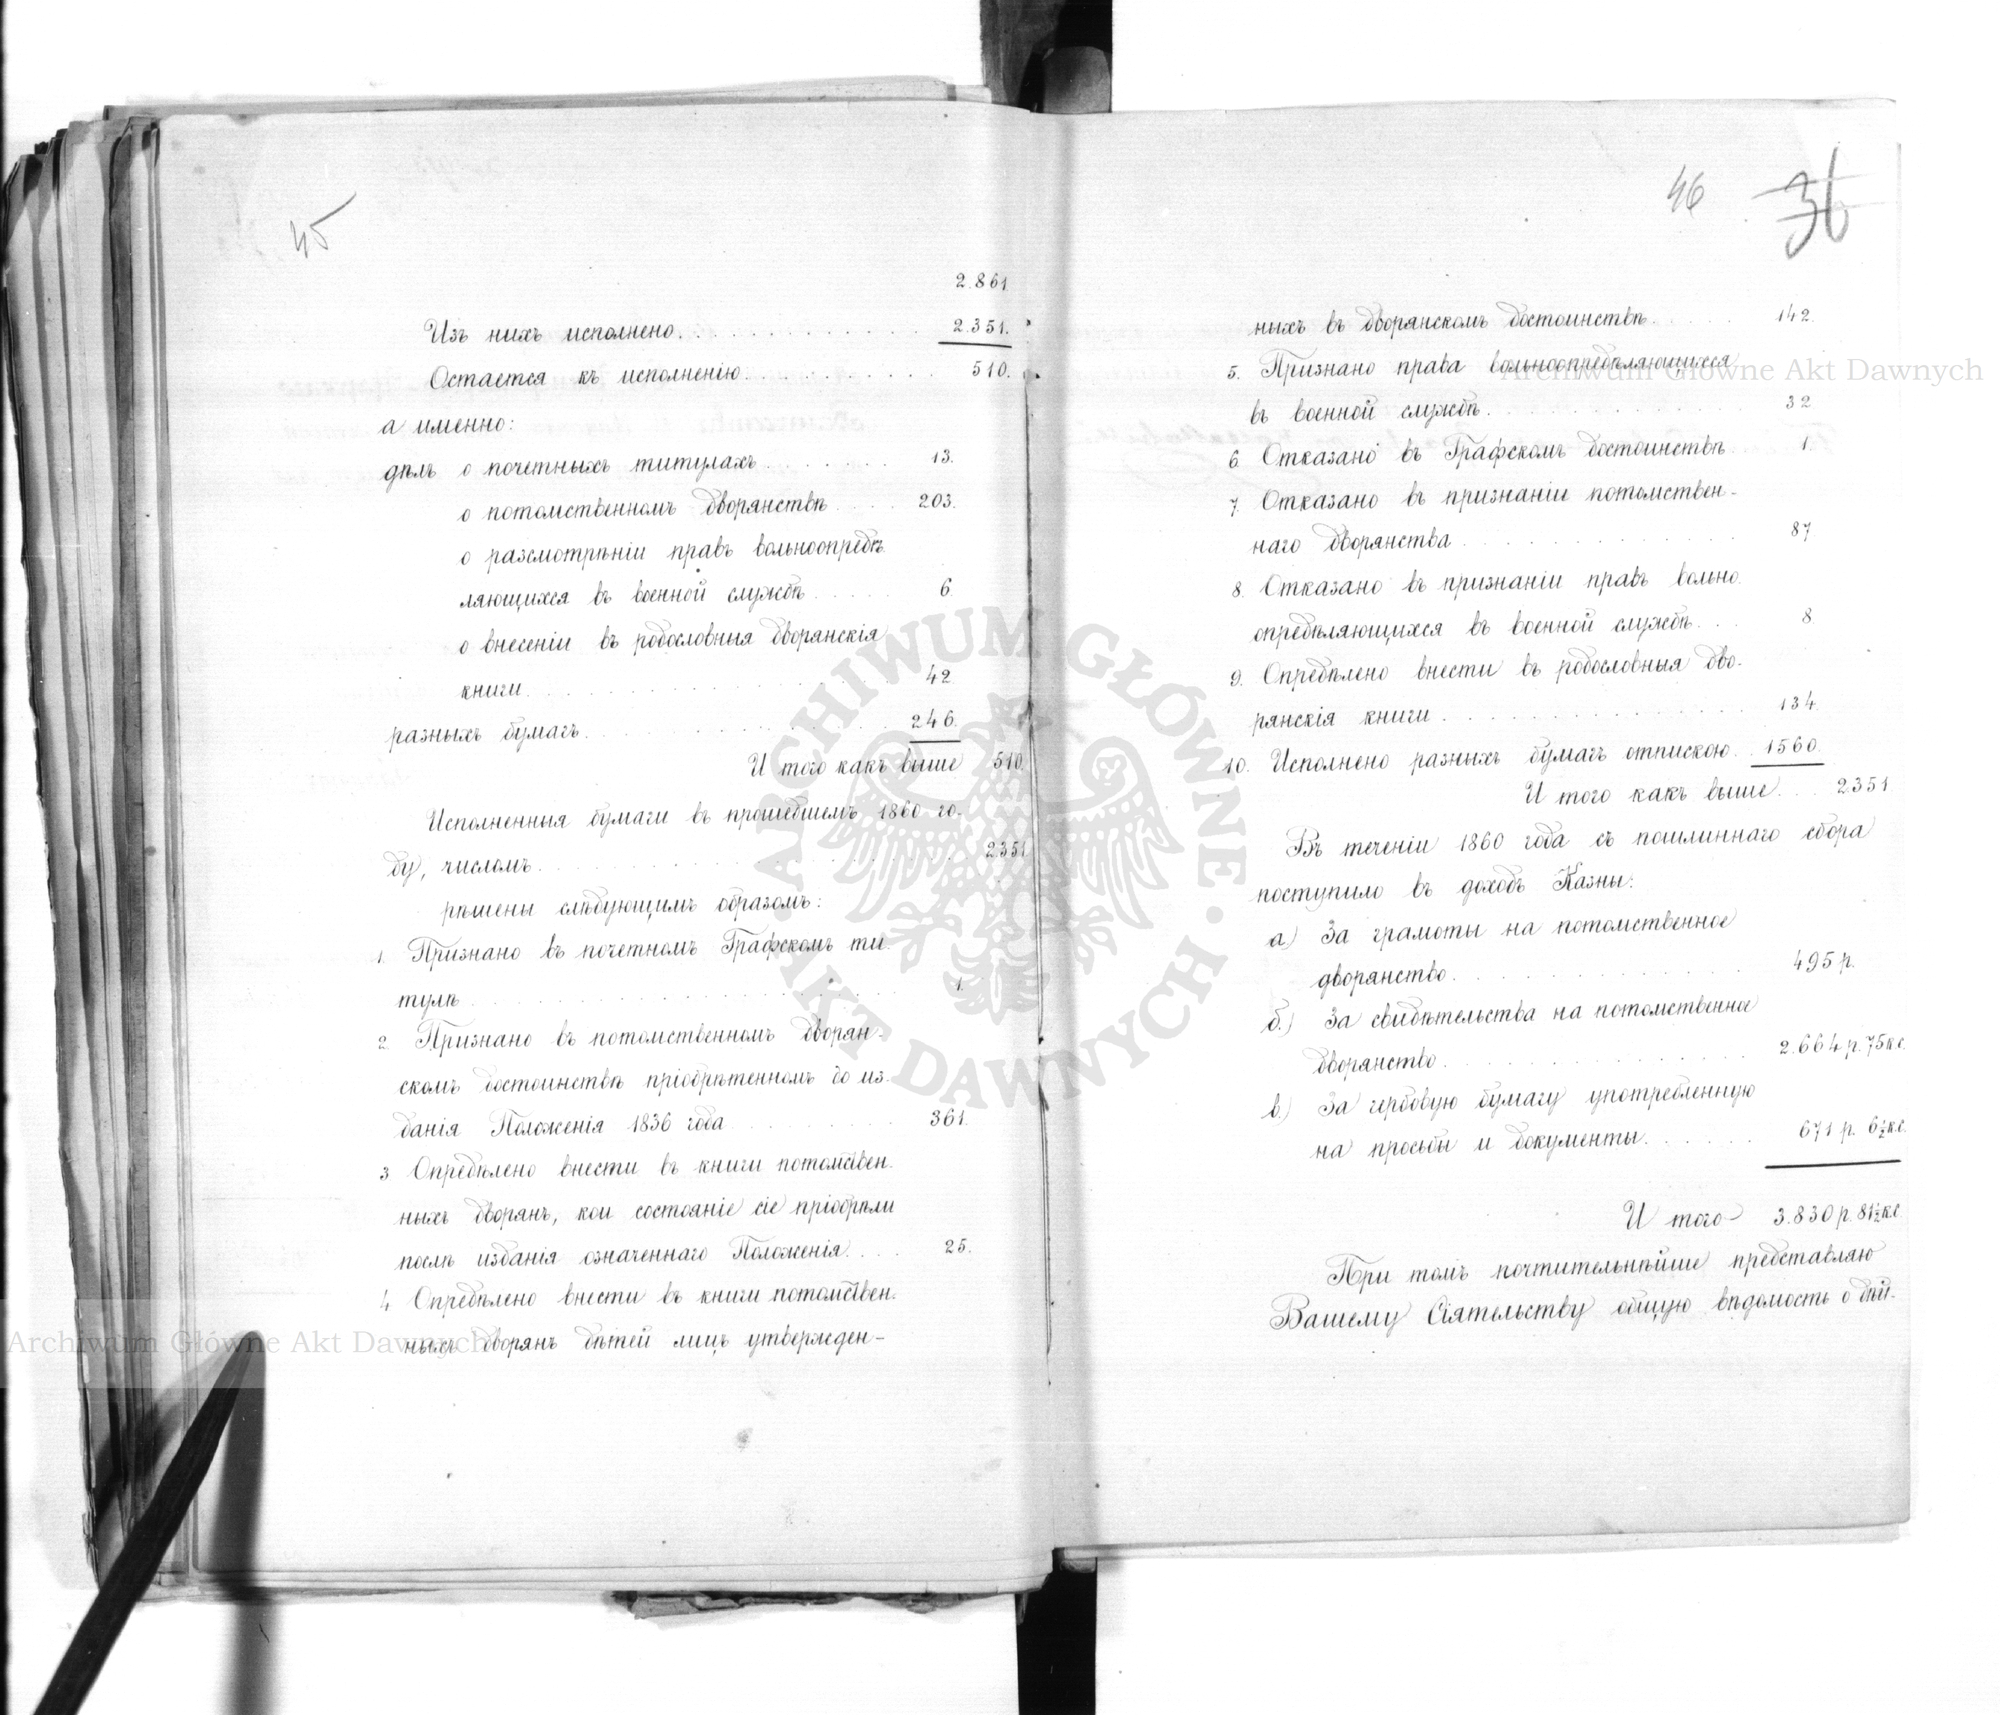 45
2.861
Изъ нихъ исполнено. . . . . . . . . . 2.351.
Остается къ исполненію. . . . . . . . . 510.
а именно:
дѣлъ о почетныхъ титулахъ . . . . . . 13.
о потомственномъ дворянствѣ . . . . 203.
о разсмотрѣніи правъ вольноопредѣ
ляющихся въ военной службѣ . . . . . 6.
о внесеніи въ родословныя дворянскія
книги. . . . . . . . . . . . . . 42.
разныхъ бумагъ. . . . . . . . . . . 246.
И того какъ выше 510.
Исполненныя бумаги въ прошедшемъ 1860 го-
ду, числомъ. . . . . . . . . . . . 2351
рѣшены слѣдующимъ образомъ:
1. Признано въ почетномъ Графскомъ ти-
тулѣ . . . . . . . . . . . . . . 1.
2. Признано въ потомственномъ дворян-
скомъ достоинствѣ пріобрѣтенномъ до из-
данія Положенія 1836 года . . . . . . . 361.
3 Опредѣлено внести въ книги потомствен-
ныхъ дворянъ, кои состояніе сіе пріобрѣли
послѣ изданія означеннаго Положенія. . . . 25.
4 Опредѣлено внести въ книги потомствен-
ныхъ дворянъ дѣтей лицъ утвержден-
46 36
ныхъ въ дворянскомъ достоинствѣ. . . . . 142.
5. Признано права вольноопредѣляющихся
въ военной службѣ. . . . . . . . . . 32
6 Отказано въ Графскомъ достоинствѣ . . . 1.
7. Отказано въ признаніи потомствен-
наго дворянства . . . . . . . . . . . 87
8. Отказано въ признаніи правъ вольно
опредѣляющихся въ военной службѣ. . . 8
9. Опредѣлено внести въ родословныя дво-
рянскія книги . . . . . . . . . . . . 134.
10. Исполнено разныхъ бумагъ отпискою. . 1560.
И того какъ выше. . . 2351
Въ теченіи 1860 года съ пошлиннаго сбора
поступило въ доходъ Казны:
а.) За грамоты на потомственное
дворянство. . . . . . . . . . . . 495 р.
б.) За свидѣтельства на потомственное
дворянство. . . . . . . . . . . . 2.664 р. 75 к.с.
в.) За гербовую бумагу употребленную
на просьбы и документы. . . . . . 671 р. 6½ к.с.
И того – 3.830 р. 81½ к.с.
При томъ почтительнѣйше представляю
Вашему Сіятельству общую вѣдомость о дѣй-
Archiwum Główne Akt Dawnych
Archiwum Główne Akt Dawnych
ARCHIWUM GŁÓWNE · AKT DAWNYCH ·